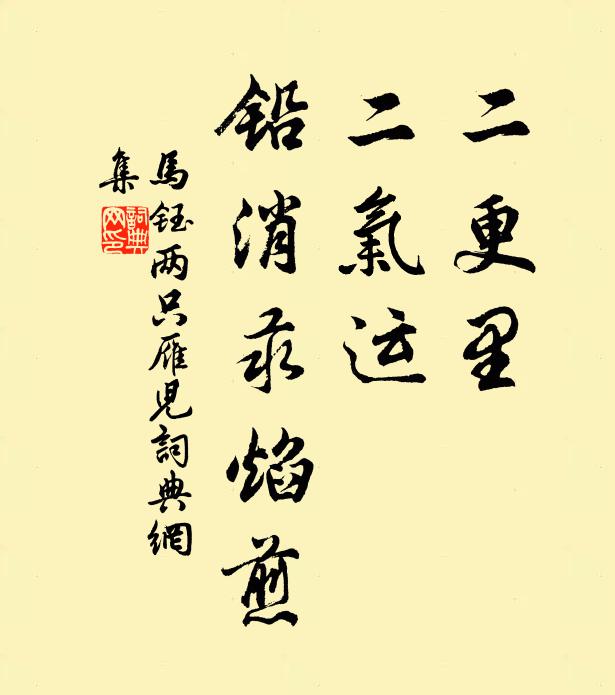 二更里
二氣运
鉛消汞焰煎
馬鈺两只雁児詞典網
集
詞典
网印